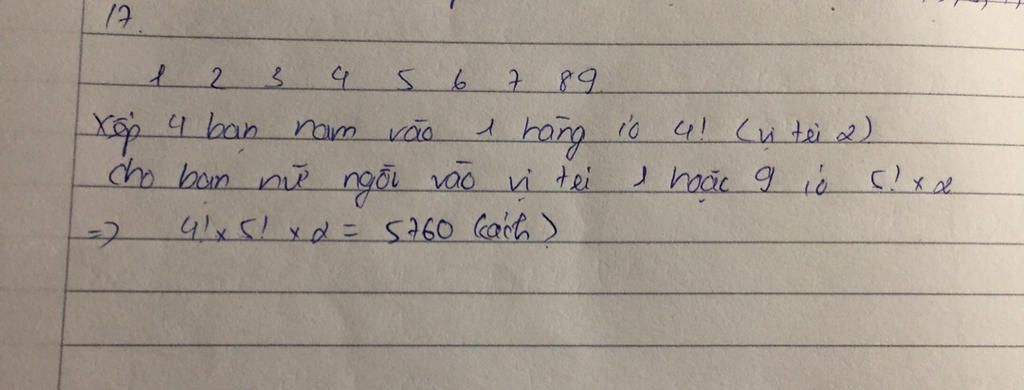 17.
1 2 3 4 5 6 7 8 9
Xếp 4 bạn nam vào 1 hàng có 4! (vị trí 2)
cho bạn nữ ngồi vào vị trí 1 hoặc 9 có 5! × 2
=> 4! × 5! × 2 = 5760 (cách)